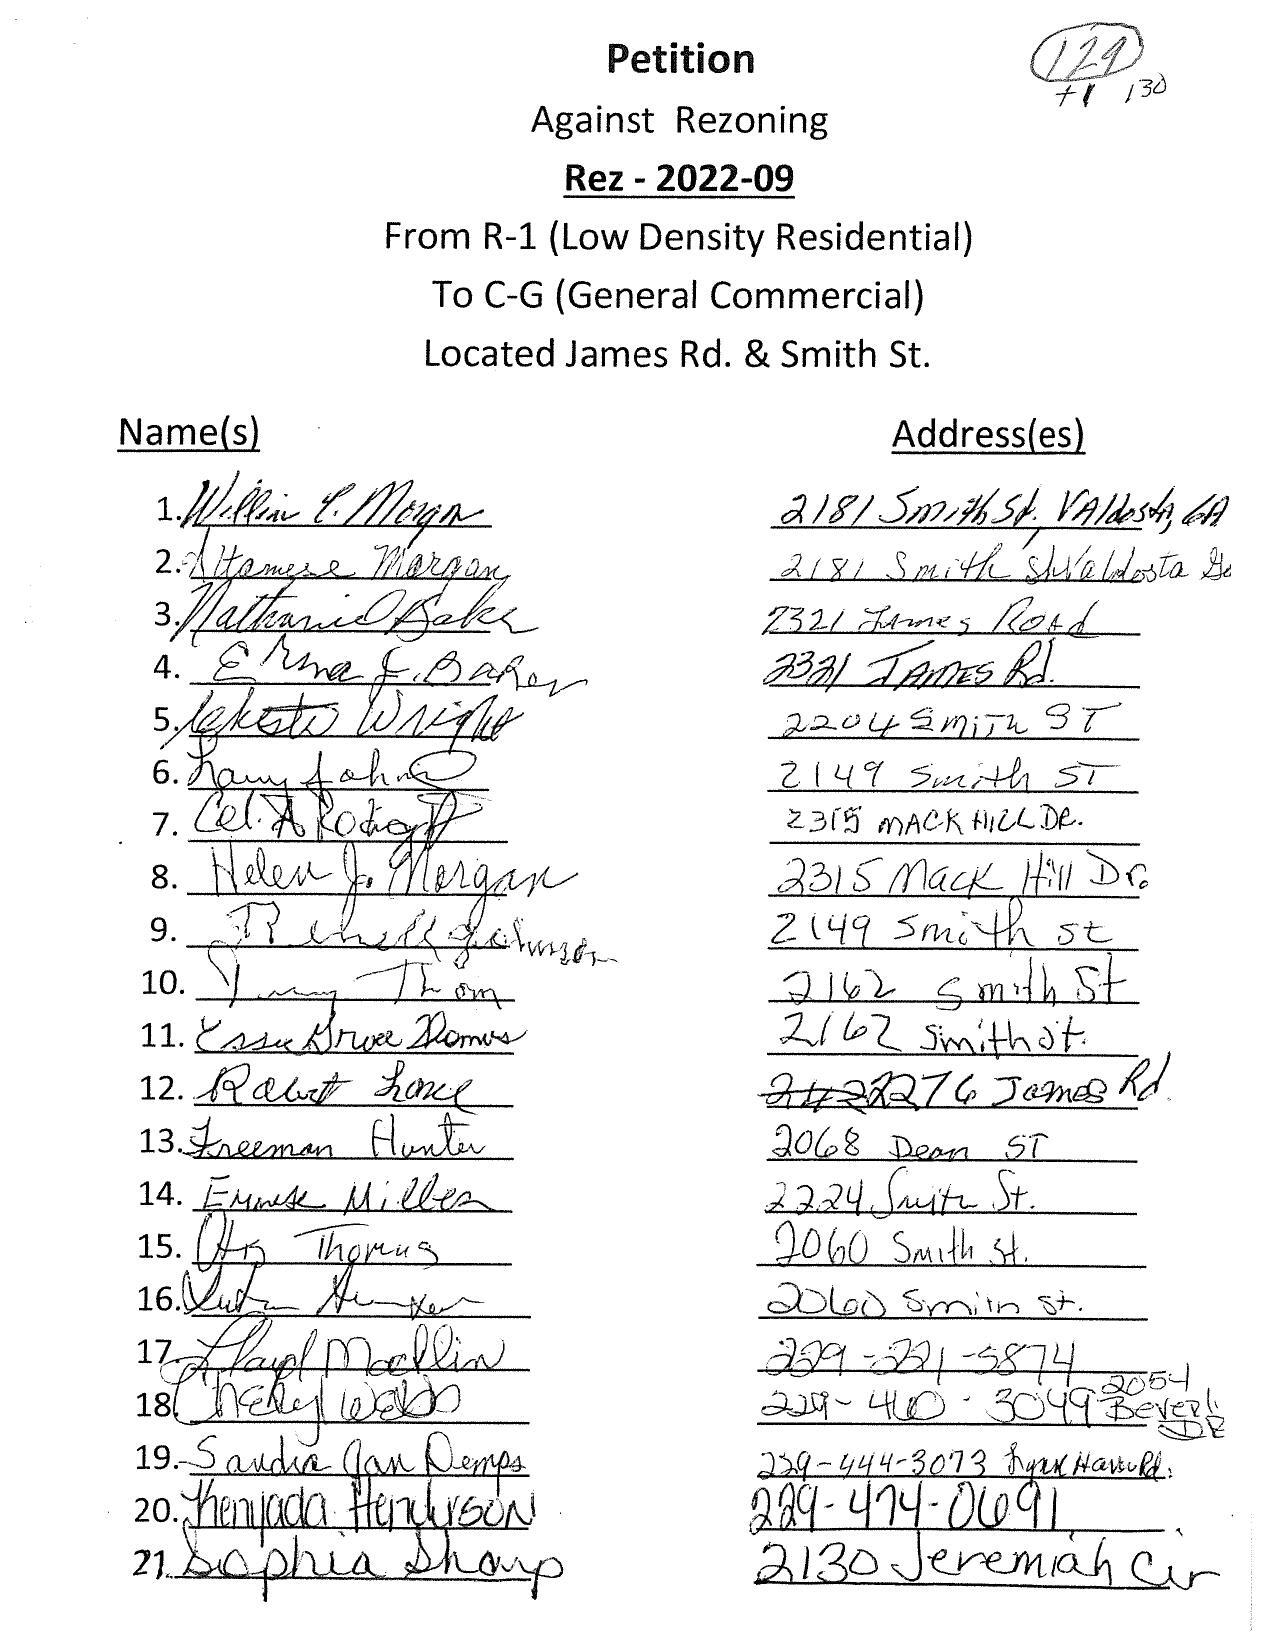 Petition
129
+1 130
Against Rezoning
Rez - 2022-09
From R-1 (Low Density Residential)
To C-G (General Commercial)
Located James Rd. & Smith St.
Name(s) Address(es)
1. Morgan 2181 Smith St. Valdosta, GA
2. Altamese Morgan 2181 Smith St Valdosta Ga
3. Nathaniel Baker 2321 James Road
4. Erma J. Baker 2321 James Rd.
5. Wright 2204 Smith ST
6. Larry Johnson 2149 Smith ST
7. 2315 MACK HILL DR.
8. Helen J. Morgan 2315 Mack Hill Dr.
9. Johnson 2149 Smith st
10. Thom 2162 Smith St
11. Essie 2162 Smith St.
12. Robert 2276 James Rd.
13. Freeman Hunter 2068 Dean ST
14. Miller 2224 Smith St.
15. Otis Thomas 2060 Smith St.
16. 2060 Smith st.
17. Lloyd Macllin 229-221-5874
18. Webb 229-460-3049 2054 Beverly DR
19. Sandra Jan Demps 229-444-3073 Rd.
20. Kenyada Henderson 229-474-0691
21. Sophia Sharp 2130 Jeremiah Cir